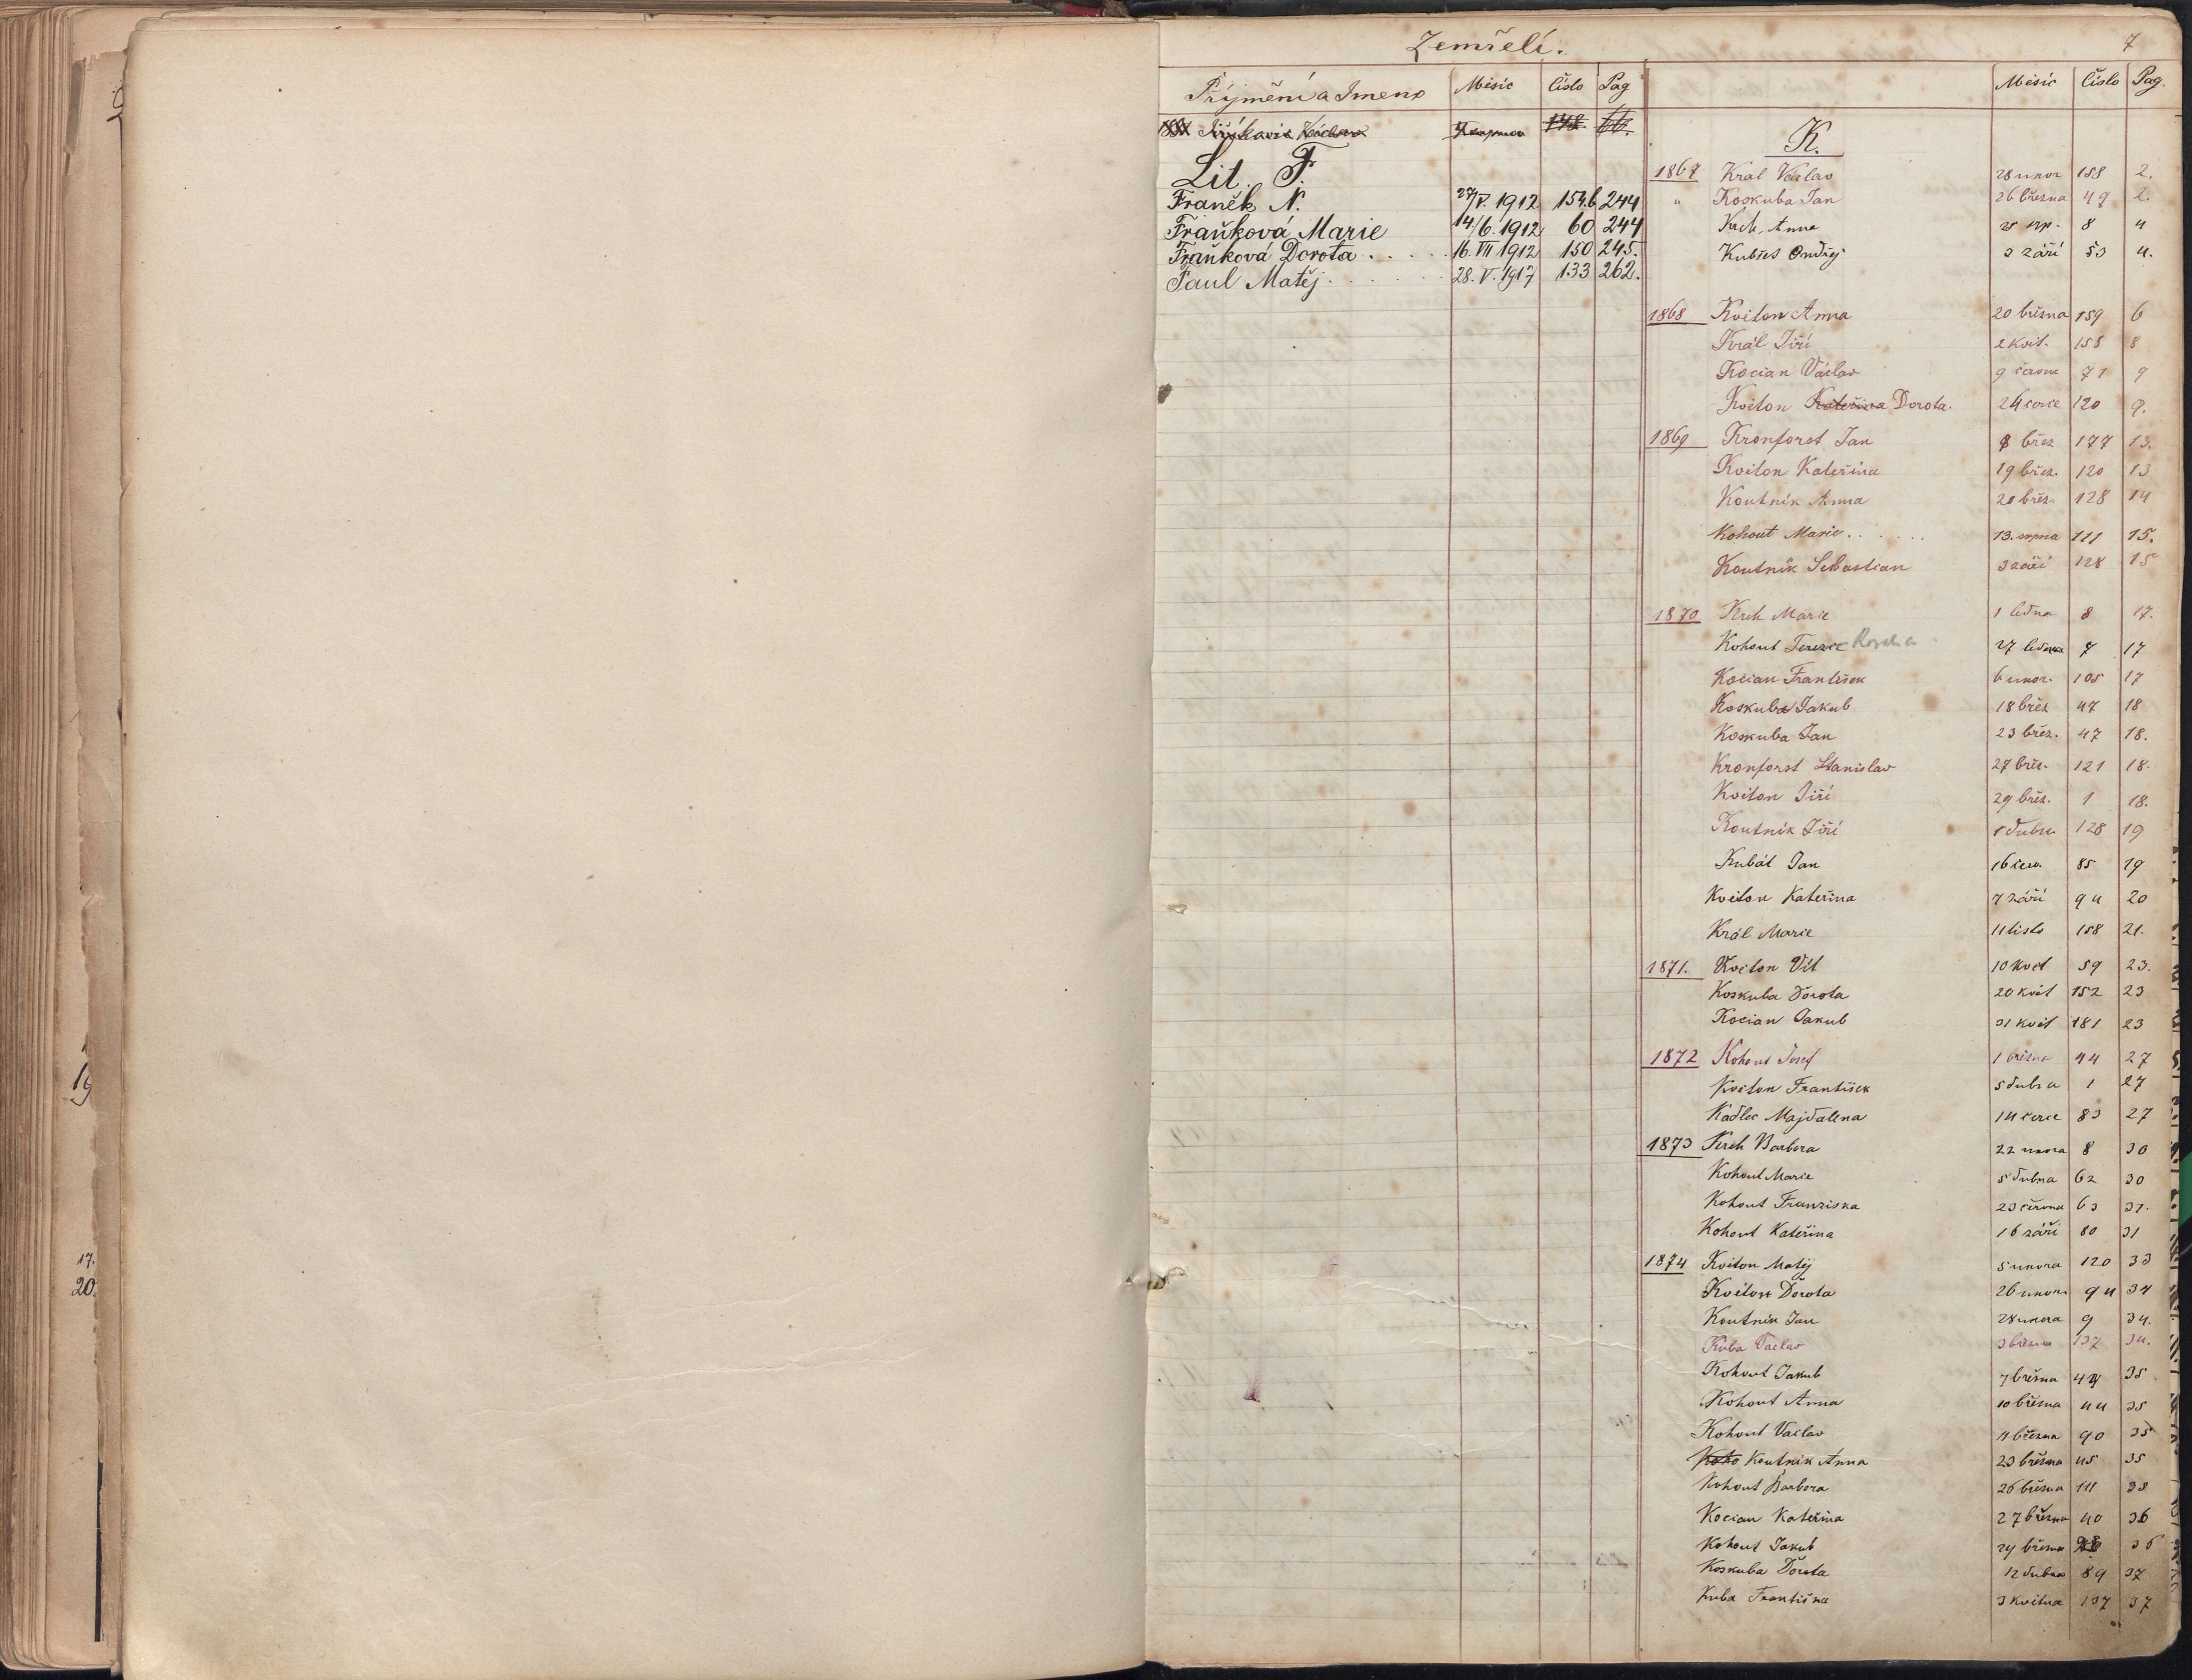 Zemřelí.
7
Příjmění a Jmeno Měsíc Číslo Pag
148. 66.
Lit. F.
Franěk N. 27/V. 1912 154.b 244
Fraňková Marie 14/6. 1912 60 244
Fraňková Dorota . . . . . 16. VII 1912 150 245.
Paul Matěj . . . . . . 28. V. 1917 133 262.
Měsíc Číslo Pag.
K.
1867 Král Václav 28 unor 158 2.
" Koskuba Jan 26 března 49 2.
Krch Anna 25 srp. 8 4
Kubíš Ondřej 3 září 53 4.
1868 Kviton Anna 20 března 159 6
Král Jiří 2 kvít. 158 8
Kocian Václav 9 června 71 9
Kviton Kateřina Dorota. 24 cerce 120 9.
1869 Kronforst Jan 8 břez 177 13.
Kviton Kateřina 19 břez. 120 13
Koutník Anna 20 břez. 128 14
Kohout Marie . . . . . . 13. srpna 111 15.
Koutník Sebastian 3 září 128 15
1870 Krch Marie 1 ledna 8 17.
Kohout Terezie Rosalia 27 ledna 7 17
Kocian František 6 unor. 105 17
Koskuba Jakub 18 břez 47 18
Koskuba Jan 23 břez. 47 18.
Kronforst Stanislav 27 břez. 121 18.
Kviton Jiří 29 břez. 1 18.
Koutník Jiří 1 dubna 128 19
Kubát Jan 16 čern 85 19
Kviton Kateřina 7 září 94 20
Král Marie 11 listo 158 21.
1871. Kviton Vít 10 kvet 59 23.
Koskuba Dorota 20 květ 152 23
Kocian Jakub 31 květ 181 23
1872 Kohout Josef 1 března 44 27
Kviton František 5 dubna 1 27
Kadlec Majdalena 14 cerce 83 27
1873 Krch Barbora 22 unora 8 30
Kohout Marie 5 dubna 62 30
Kohout Franziska 23 června 63 31.
Kohout Kateřina 16 září 80 31
1874 Kviton Matěj 5 unora 120 33
Kviton Dorota 26 unora 94 34
Koutník Jan 28 unora 9 34.
Kuba Václav 3 března 137 34.
Kohout Jakub 7 března 44 35
Kohout Anna 10 března 44 35
Kohout Václav 11 března 90 35
Koho Koutník Anna 23 března 45 35
Kohout Barbora 26 března 111 38
Kocian Kateřina 27 března 40 36
Kohout Jakub 29 března 36
Koskuba Dorota 12 dubna 89 37
Kuba Františka 3 května 137 37
19
17.
20.